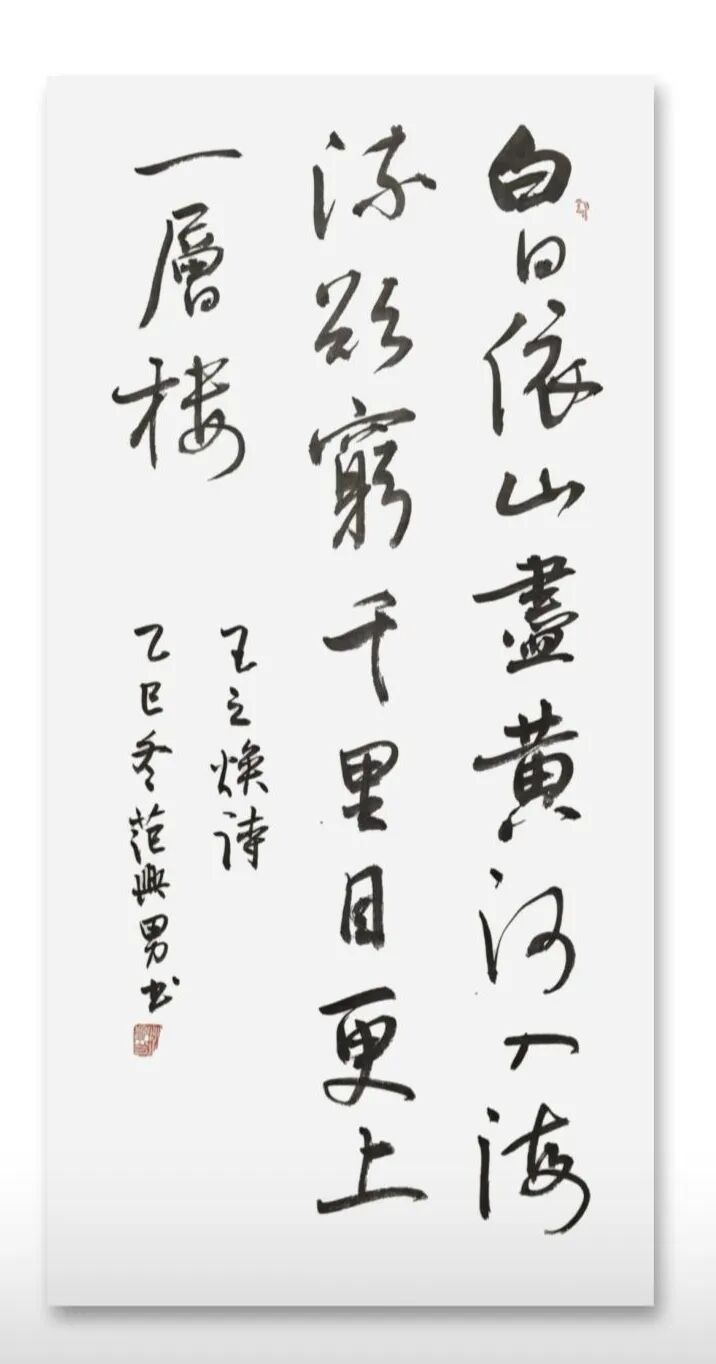 白日依山盡黄河入海
流欲窮千里目更上
一層楼
王之焕诗
乙巳冬范興男书